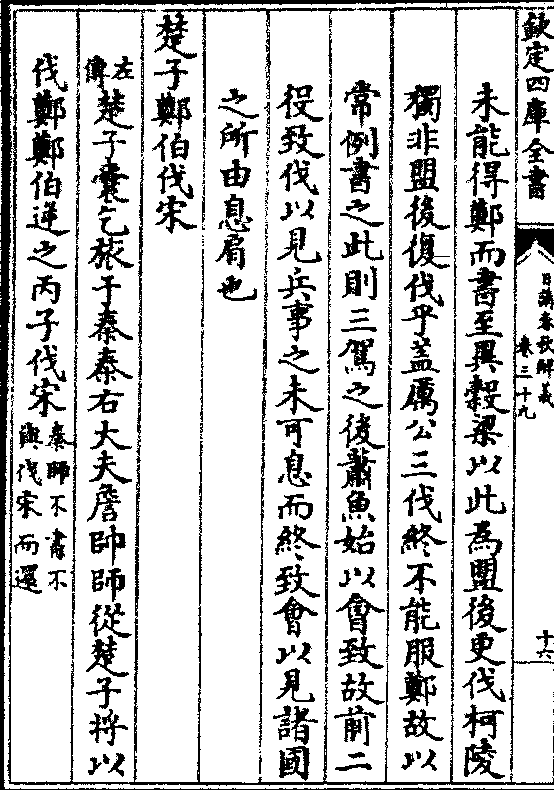 欽定四庫全書
日講春秋解義
卷三十九
十六
未能得鄭而書至異穀梁以此為盟後更伐柯陵
獨非盟後復伐乎蓋厲公三伐終不能服鄭故以
常例書之此則三駕之後蕭魚始以會致故前二
役致伐以見兵事之未可息而終致會以見諸國
之所由息肩也
楚子鄭伯伐宋
左傳楚子囊乞旅于秦秦右大夫詹帥師從楚子将以
伐鄭鄭伯逆之丙子伐宋秦師不書不與伐宋而還